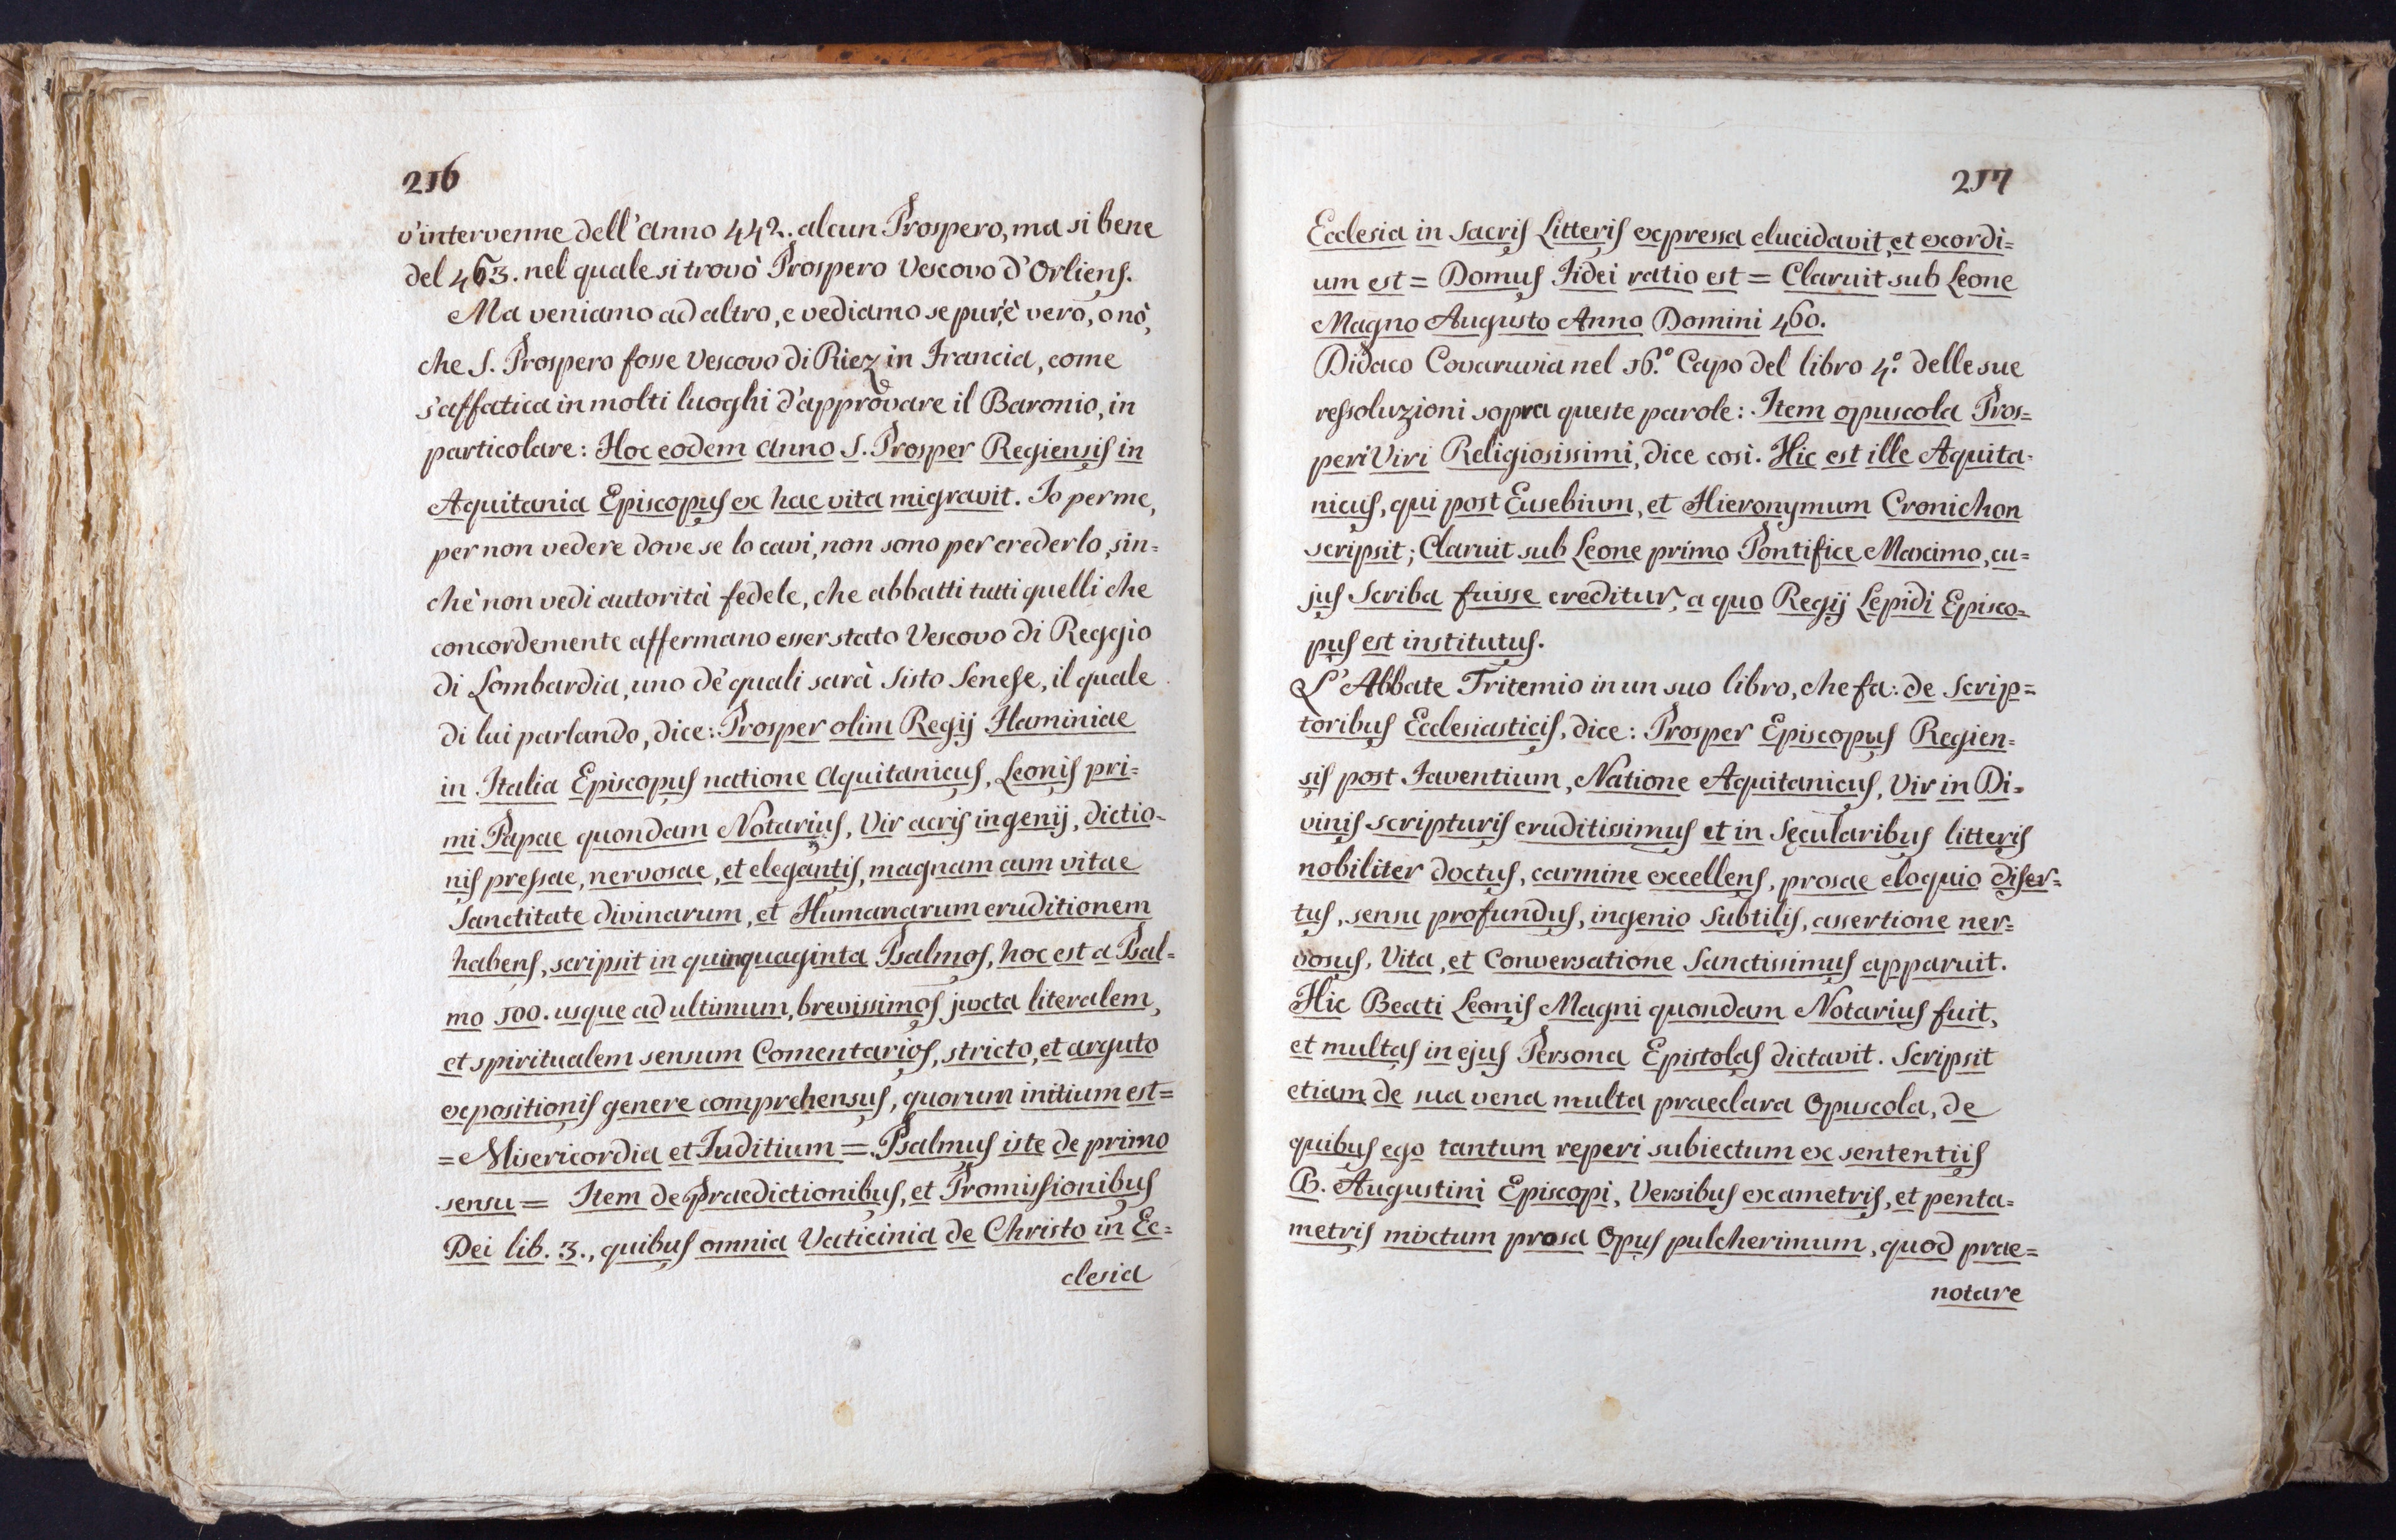 216
v'intervenne dell'anno 442. alcun Prospero, ma si bene
del 463. nel quale si trovò Prospero Vescovo d'Orliens.
Ma veniamo ad altro, e vediamo se pur'è vero, o nò,
che S. Prospero fosse Vescovo di Riez in Francia, come
s'affatica in molti luoghi d'approvare il Baronio, in
particolare: Hoc eodem anno S. Prosper Regiensis in
Aquitania Episcopus ex hac vita migravit. Io per me,
per non vedere dove se lo cavi, non sono per crederlo, sin=
chè non vedi autorità fedele, che abbatti tutti quelli che
concordemente affermano esser stato Vescovo di Reggio
di Lombardia, uno de' quali sarà Sisto Senese, il quale
di lui parlando, dice: Prosper olim Regij Flaminiae
in Italia Episcopus natione Aquitanicus, Leonis pri=
mi Papae quondam Notarius, Vir acris ingenij, dictio=
nis pressae, nervosae, et elegantis, magnam cum vitae
Sanctitate divinarum, et Humanarum eruditionem
habens, scripsit in quinquaginta Psalmos, hoc est a Psal=
mo 100. usque ad ultimum, brevissimos juxta literalem,
et spiritualem sensum Comentarios, stricto, et arguto
expositionis genere comprehensus, quorum initium est=
= Misericordia et Iuditium = Psalmus iste de primo
sensu = Item de Praedictionibus, et Promissionibus
Dei lib. 3., quibus omnia Vaticinia de Christo in Ec=
clesia
217
Ecclesia in Sacris Litteris expressa elucidavit, et exordi=
um est = Domus Fidei ratio est = Claruit sub Leone
Magno Augusto Anno Domini 460.
Didaco Covaruvia nel 16.º Capo del libro 4.º delle sue
ressoluzioni sopra queste parole: Item opuscola Pros=
peri Viri Religiosissimi, dice così. Hic est ille Aquita=
nicus, qui post Eusebium, et Hieronymum Cronichon
scripsit; Claruit sub Leone primo Pontifice Maximo, cu=
jus Scriba fuisse creditur, a quo Regij Lepidi Episco=
pus est institutus.
L'Abbate Tritemio in un suo libro, che fa: de Scrip=
toribus Ecclesiasticis, dice: Prosper Episcopus Regien=
sis post Faventium, Natione Aquitanicus, Vir in Di=
vinis scripturis eruditissimus et in Sęcularibus litteris
nobiliter doctus, carmine excellens, prosae eloquio diser=
tus, sensu profundus, ingenio Subtilis, assertione ner=
vosus, Vita, et Conversatione Sanctissimus apparuit.
Hic Beati Leonis Magni quondam Notarius fuit,
et multas in ejus Persona Epistolas dictavit. Scripsit
etiam de sua vena multa praeclara Opuscola, de
quibus ego tantum reperi subiectum ex sententiis
B. Augustini Episcopi, Versibus exametris, et penta=
metris mixtum prosa Opus pulcherimum, quod prae=
notare